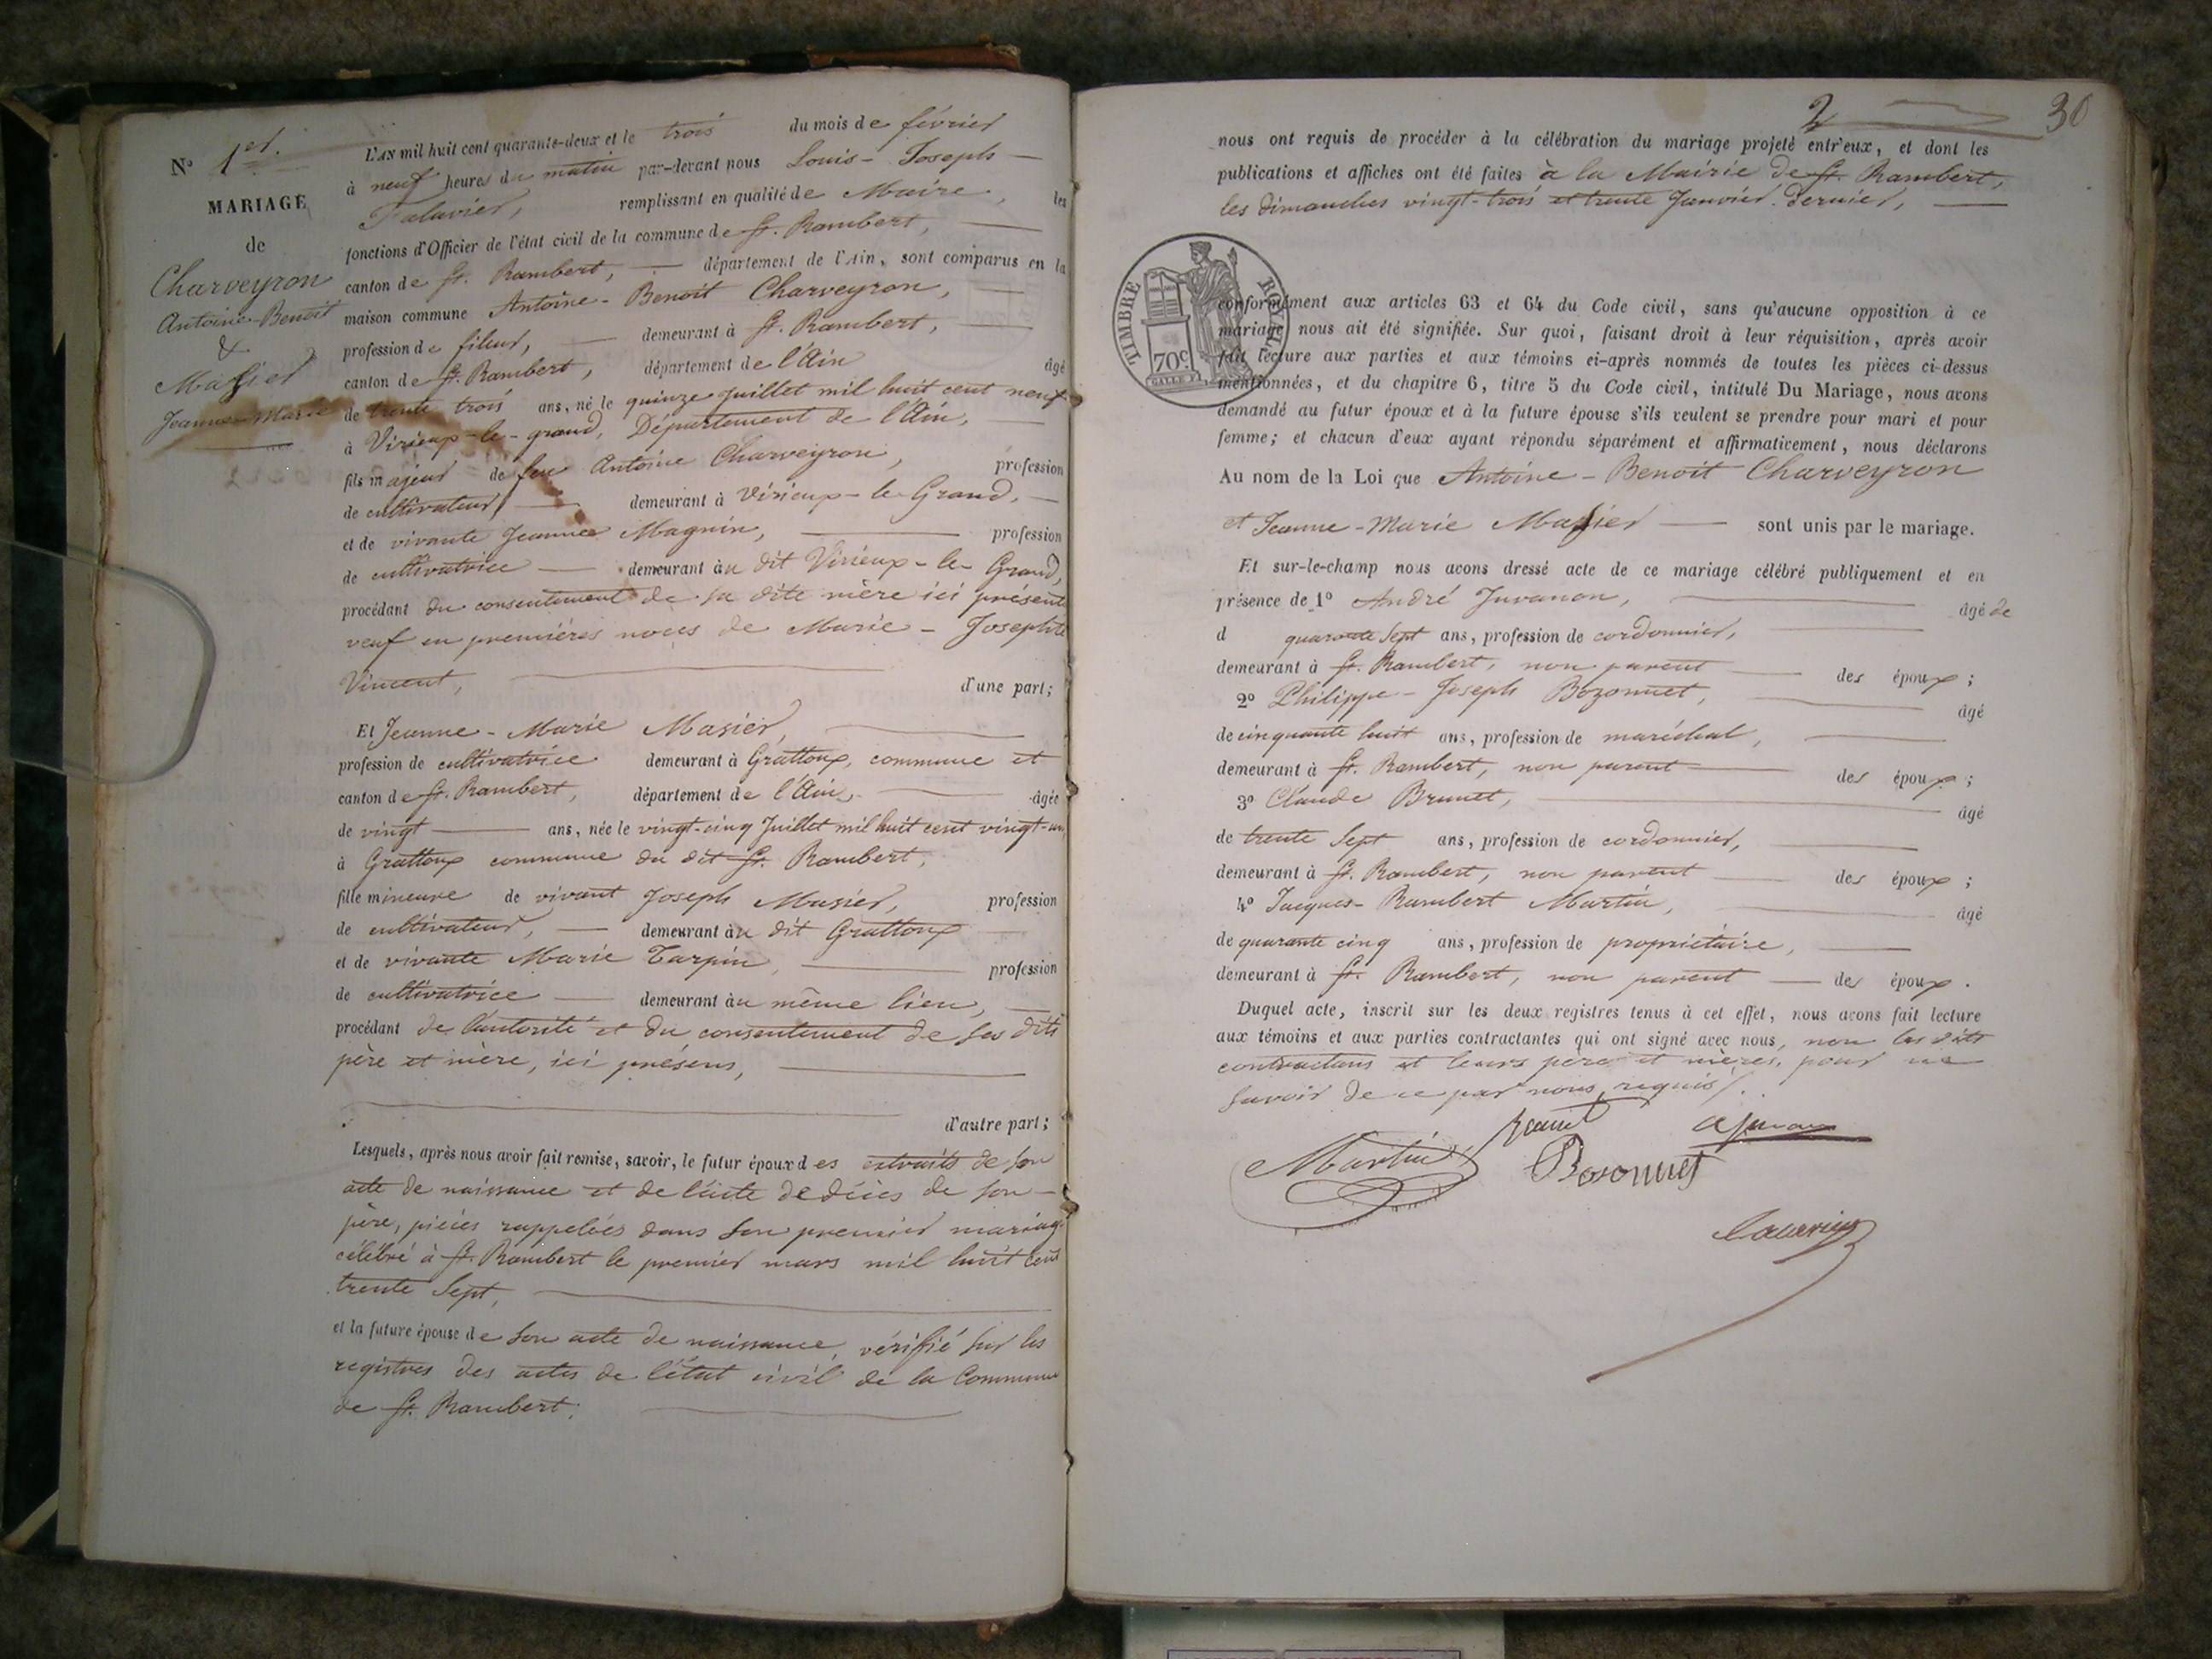 N° 1er.
MARIAGE
de
Charveyron
Antoine-Benoit
&
Masier
Jeanne-Marie
L'AN mil huit cent quarante-deux et le trois du mois de février
à neuf heures du matin par-devant nous Louis-Joseph
remplissant en qualité de Maire, les
fonctions d'Officier de l'état civil de la commune de St. Rambert,
canton de St. Rambert, département de l'Ain, sont comparus en la
maison commune Antoine-Benoit Charveyron,
profession de fileur, demeurant à St. Rambert,
canton de St. Rambert, département de l'Ain âgé
de trente trois ans, né le quinze juillet mil huit cent neuf
à Virieux-le-grand, Département de l'Ain,
fils majeur de feu Antoine Charveyron, profession
de cultivateur, demeurant à Virieux-le-Grand,
et de vivante Jeanne Magnin, profession
de cultivatrice demeurant au dit Virieux-le-Grand,
procédant du consentement de sa dite mère ici présente
veuf en premières noces de Marie-Josephte
Vincent, d'une part;
Et Jeanne-Marie Masier,
profession de cultivatrice demeurant à Grattoux, commune et
canton de St. Rambert, département de l'Ain, âgée
de vingt ans, née le vingt-cinq Juillet mil huit cent vingt-un,
à Grattoux commune du dit St. Rambert,
fille mineure de vivant Joseph Masier, profession
de cultivateur, demeurant au dit Grattoux
et de vivante Marie Tarpin, profession
de cultivatrice demeurant au même lieu,
procédant de l'autorité et du consentement de ses dits
père et mère, ici présens,
d'autre part;
Lesquels, après nous avoir fait remise, savoir, le futur époux des extraits de son
acte de naissance et de l'acte de décès de son
père, pièces rappelées dans son premier mariage
célébré à St. Rambert le premier mars mil huit cent
trente sept,
et la future épouse de son acte de naissance, vérifié sur les
registres des actes de l'état civil de la Commune
de St. Rambert;
2
30
nous ont requis de procéder à la célébration du mariage projeté entr'eux, et dont les
publications et affiches ont été faites à la Mairie de St. Rambert,
les dimanches vingt-trois et trente Janvier dernier,
TIMBRE ROYAL
70c.
conformément aux articles 63 et 64 du Code civil, sans qu'aucune opposition à ce
mariage nous ait été signifiée. Sur quoi, faisant droit à leur réquisition, après avoir
fait lecture aux parties et aux témoins ci-après nommés de toutes les pièces ci-dessus
mentionnées, et du chapitre 6, titre 5 du Code civil, intitulé Du Mariage, nous avons
demandé au futur époux et à la future épouse s'ils veulent se prendre pour mari et pour
femme; et chacun d'eux ayant répondu séparément et affirmativement, nous déclarons
Au nom de la Loi que Antoine-Benoit Charveyron
et Jeanne-Marie Masier sont unis par le mariage.
Et sur-le-champ nous avons dressé acte de ce mariage célébré publiquement et en
présence de 1° André Juvanon, âgé de
d quarante sept ans, profession de cordonnier,
demeurant à St. Rambert, non parent des époux;
2° Philippe-Joseph Bozonnet, âgé
de cinquante huit ans, profession de maréchal,
demeurant à St. Rambert, non parent des époux;
3° Claude Brunet, âgé
de trente sept ans, profession de cordonnier,
demeurant à St. Rambert, non parent des époux;
4° Jacques-Rambert Martin, âgé
de quarante cinq ans, profession de propriétaire,
demeurant à St. Rambert, non parent des époux.
Duquel acte, inscrit sur les deux registres tenus à cet effet, nous avons fait lecture
aux témoins et aux parties contractantes qui ont signé avec nous, non les dits
contractans et leurs père et mères, pour ne
savoir de ce par nous requis.
Martin
Bosonnet